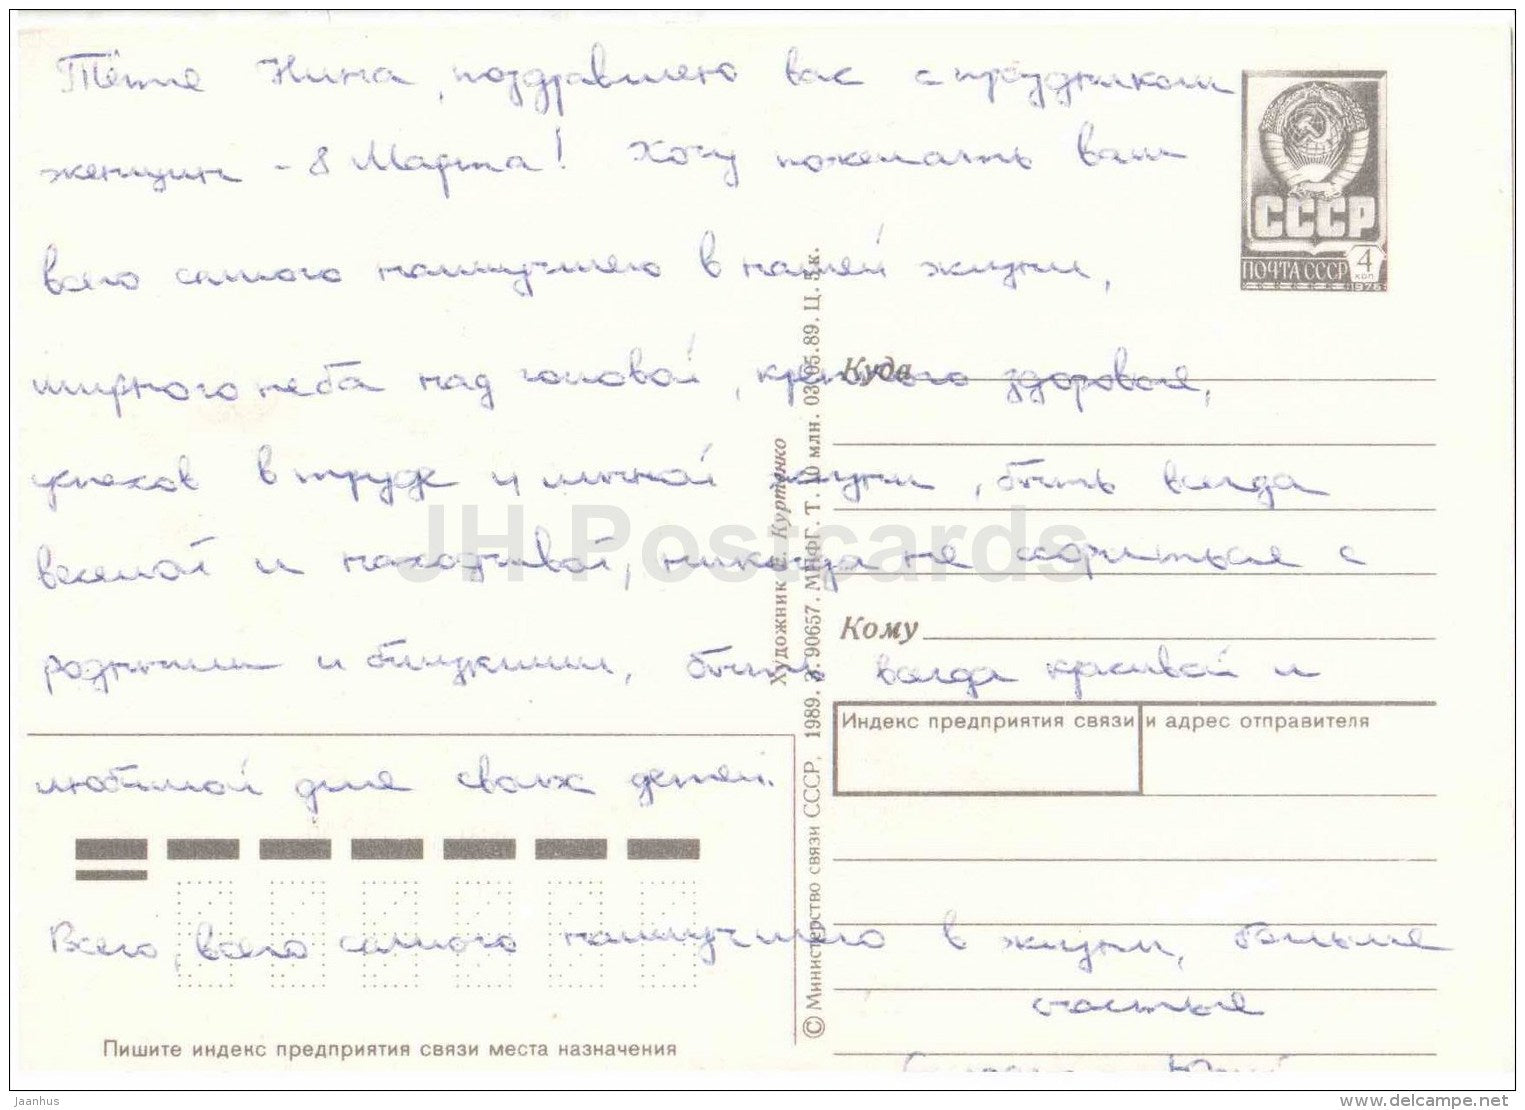 Тётя Нина, поздравляю вас с праздником
женщин - 8 Марта! Хочу пожелать вам
всего самого наилучшего в нашей жизни,
мирного неба над головой, крепкого здоровья,
успехов в труде и личной жизни, быть всегда
весёлой и находчивой, никогда не ссориться с
родными и близкими, быть всегда красивой и
любимой для своих детей.
Всего, всего самого наилучшего в жизни, больше
счастья
Юрий
СССР
ПОЧТА СССР 4 коп
1976
Куда
Кому
Индекс предприятия связи и адрес отправителя
Художник Е. Куртенко
© Министерство связи СССР, 1989. З. 90657. МПФГ. Т. 10 млн. 03.05.89. Ц. 5 к.
Пишите индекс предприятия связи места назначения
JH Postcards
Jaanhus
www.delcampe.net